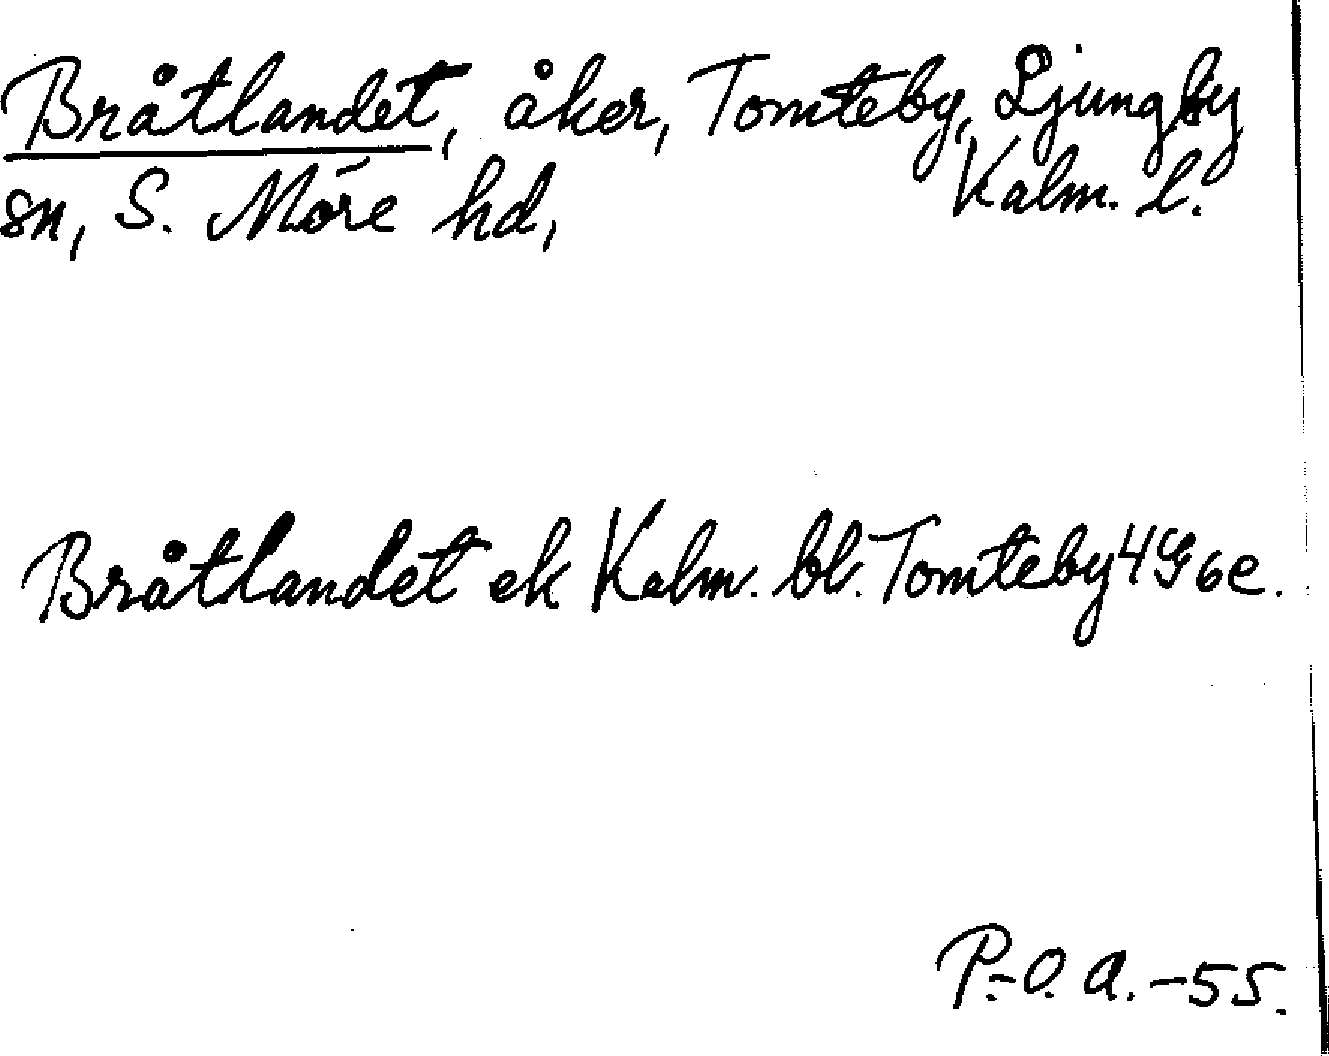 Bråtlandet, åker, Tomteby, Ljungby
sn, S. Möre hd, Kalm. l.
Bråtlandet ek Kalm. bl. Tomteby 4G6e.
P.-O. A. -55.